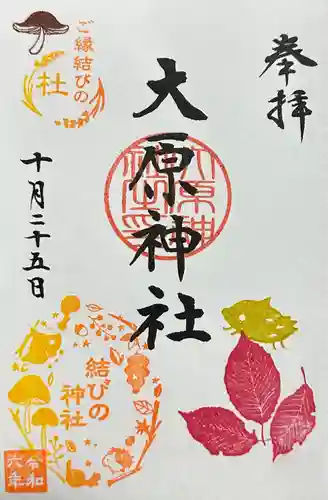 奉拝
大原神社
ご縁結びの
社
十月二十五日
結びの
神社
令和
六年